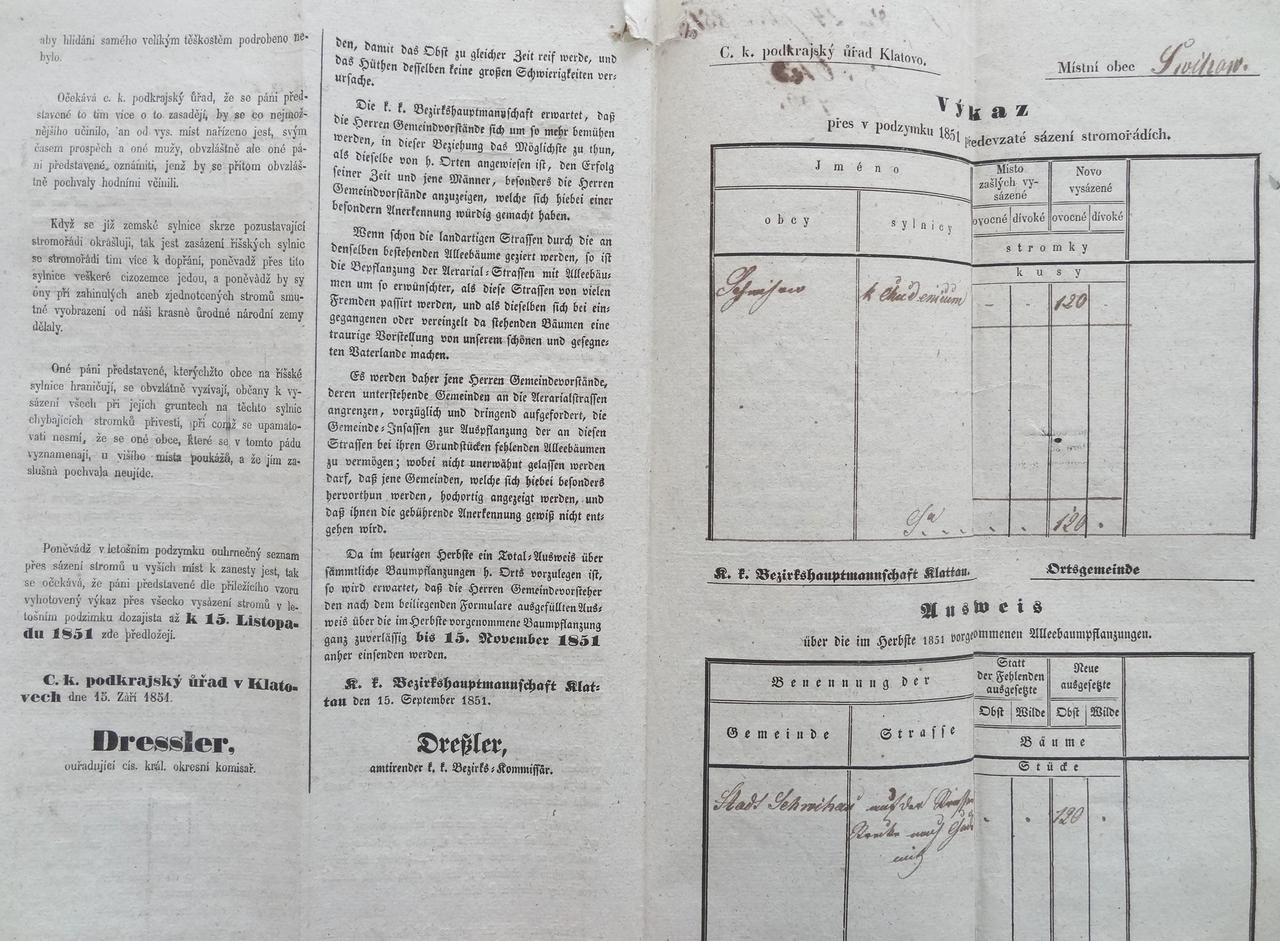 aby hlídání samého velikým těškostěm podrobeno ne-
bylo.
Očekává c. k. podkrajský úřad, že se páni před-
stavené to tim více o to zasadějí, by se co nejmož-
nějšího učinilo, an od vys. míst nařízeno jest, svým
časem prospěch a oné muži, obvzláštně ale oné pá-
ni představené, oznámiti, jenž by se přitom obvzláš-
tně pochvaly hodními včinili.
Když se již zemské sylnice skrze pozustavající
stromořádí okrášlují, tak jest zasázení říšských sylnic
se stromořádí tím více k dopřání, poněvadž přes tito
sylnice veškeré cizozemce jedou, a poněvádž by sy
ony při zahinulých aneb zjednotcených stromů smu-
tné vyobrazení od náši krasně ůrodné národní zemy
dělaly.
Oné páni představené, kterýchžto obce na říšské
sylnice hraničují, se obvzlátně vyzívají, občany k vy-
sázení všech při jejích gruntech na těchto sylnic
chybajících stromků přivesti, při comž se upamato-
vati nesmí, že se oné obce, které se v tomto pádu
vyznamenají, u višího místa poukážů, a že jim za-
slušná pochvala neujide.
Poněvádž v letošním podzymku ouhrnečný seznam
přes sázení stromů u vyších míst k zanesty jest, tak
se očekává, že páni představené dle přiležícího vzoru
vyhotovený výkaz přes všecko vysázení stromů v le-
tošním podzimku dozajista až k 15. Listopa-
du 1851 zde předložejí.
C. k. podkrajský úřad v Klato-
vech dne 15. Září 1851.
Dressler,
ouřadující cís. král. okresní komisař.
den, damit das Obst zu gleicher Zeit reif werde, und
das Hüthen desselben keine großen Schwierigkeiten ver-
ursache.
Die k. k. Bezirkshauptmannschaft erwartet, daß
die Herren Gemeindvorstände sich um so mehr bemühen
werden, in dieser Beziehung das Möglichste zu thun,
als dieselbe von h. Orten angewiesen ist, den Erfolg
seiner Zeit und jene Männer, besonders die Herren
Gemeindvorstände anzuzeigen, welche sich hiebei einer
besondern Anerkennung würdig gemacht haben.
Wenn schon die landartigen Strassen durch die an
denselben bestehenden Alleebäume geziert werden, so ist
die Bepflanzung der Aerarial-Strassen mit Alleebäu-
men um so erwünschter, als diese Strassen von vielen
Fremden passirt werden, und als dieselben sich bei ein-
gegangenen oder vereinzelt da stehenden Bäumen eine
traurige Vorstellung von unserem schönen und gesegne-
ten Vaterlande machen.
Es werden daher jene Herren Gemeindevorstände,
deren unterstehende Gemeinden an die Aerarialstrassen
angrenzen, vorzüglich und dringend aufgefordert, die
Gemeinde-Insassen zur Auspflanzung der an diesen
Strassen bei ihren Grundstücken fehlenden Alleebäumen
zu vermögen; wobei nicht unerwähnt gelassen werden
darf, daß jene Gemeinden, welche sich hiebei besonders
hervorthun werden, hochortig angezeigt werden, und
daß ihnen die gebührende Anerkennung gewiß nicht ent-
gehen wird.
Da im heurigen Herbste ein Total-Ausweis über
sämmtliche Baumpflanzungen h. Orts vorzulegen ist,
so wird erwartet, daß die Herren Gemeindevorsteher
den nach dem beiliegenden Formulare ausgefüllten Aus-
weis über die im Herbste vorgenommene Baumpflanzung
ganz zuverlässig bis 15. November 1851
anher einsenden werden.
K. k. Bezirkshauptmannschaft Klat-
tau den 15. September 1851.
Dreßler,
amtirender k. k. Bezirks-Kommissär.
C. k. podkrajský úřad Klatovo.
Místní obec Swihow.
Výkaz
přes v podzymku 1851 předevzaté sázení stromořádích.
Jméno
Místo zašlých vy-sázené
Novo vysázené
obcy
sylnicy
ovocné divoké ovocné divoké
stromky
kusy
Schwihow k Chudenicum - - 120
Sa . . . . 120 .
K. k. Bezirkshauptmannschaft Klattau.
Ortsgemeinde
Ausweis
über die im Herbste 1851 vorgenommenen Alleebaumpflanzungen.
Benennung der
Statt der Fehlenden ausgesetzte
Neue ausgesetzte
Gemeinde
Strasse
Obst Wilde Obst Wilde
Bäume
Stücke
Stadt Schwihau auf der Strasse . . 120 .
Strecke nach Chude
nitz